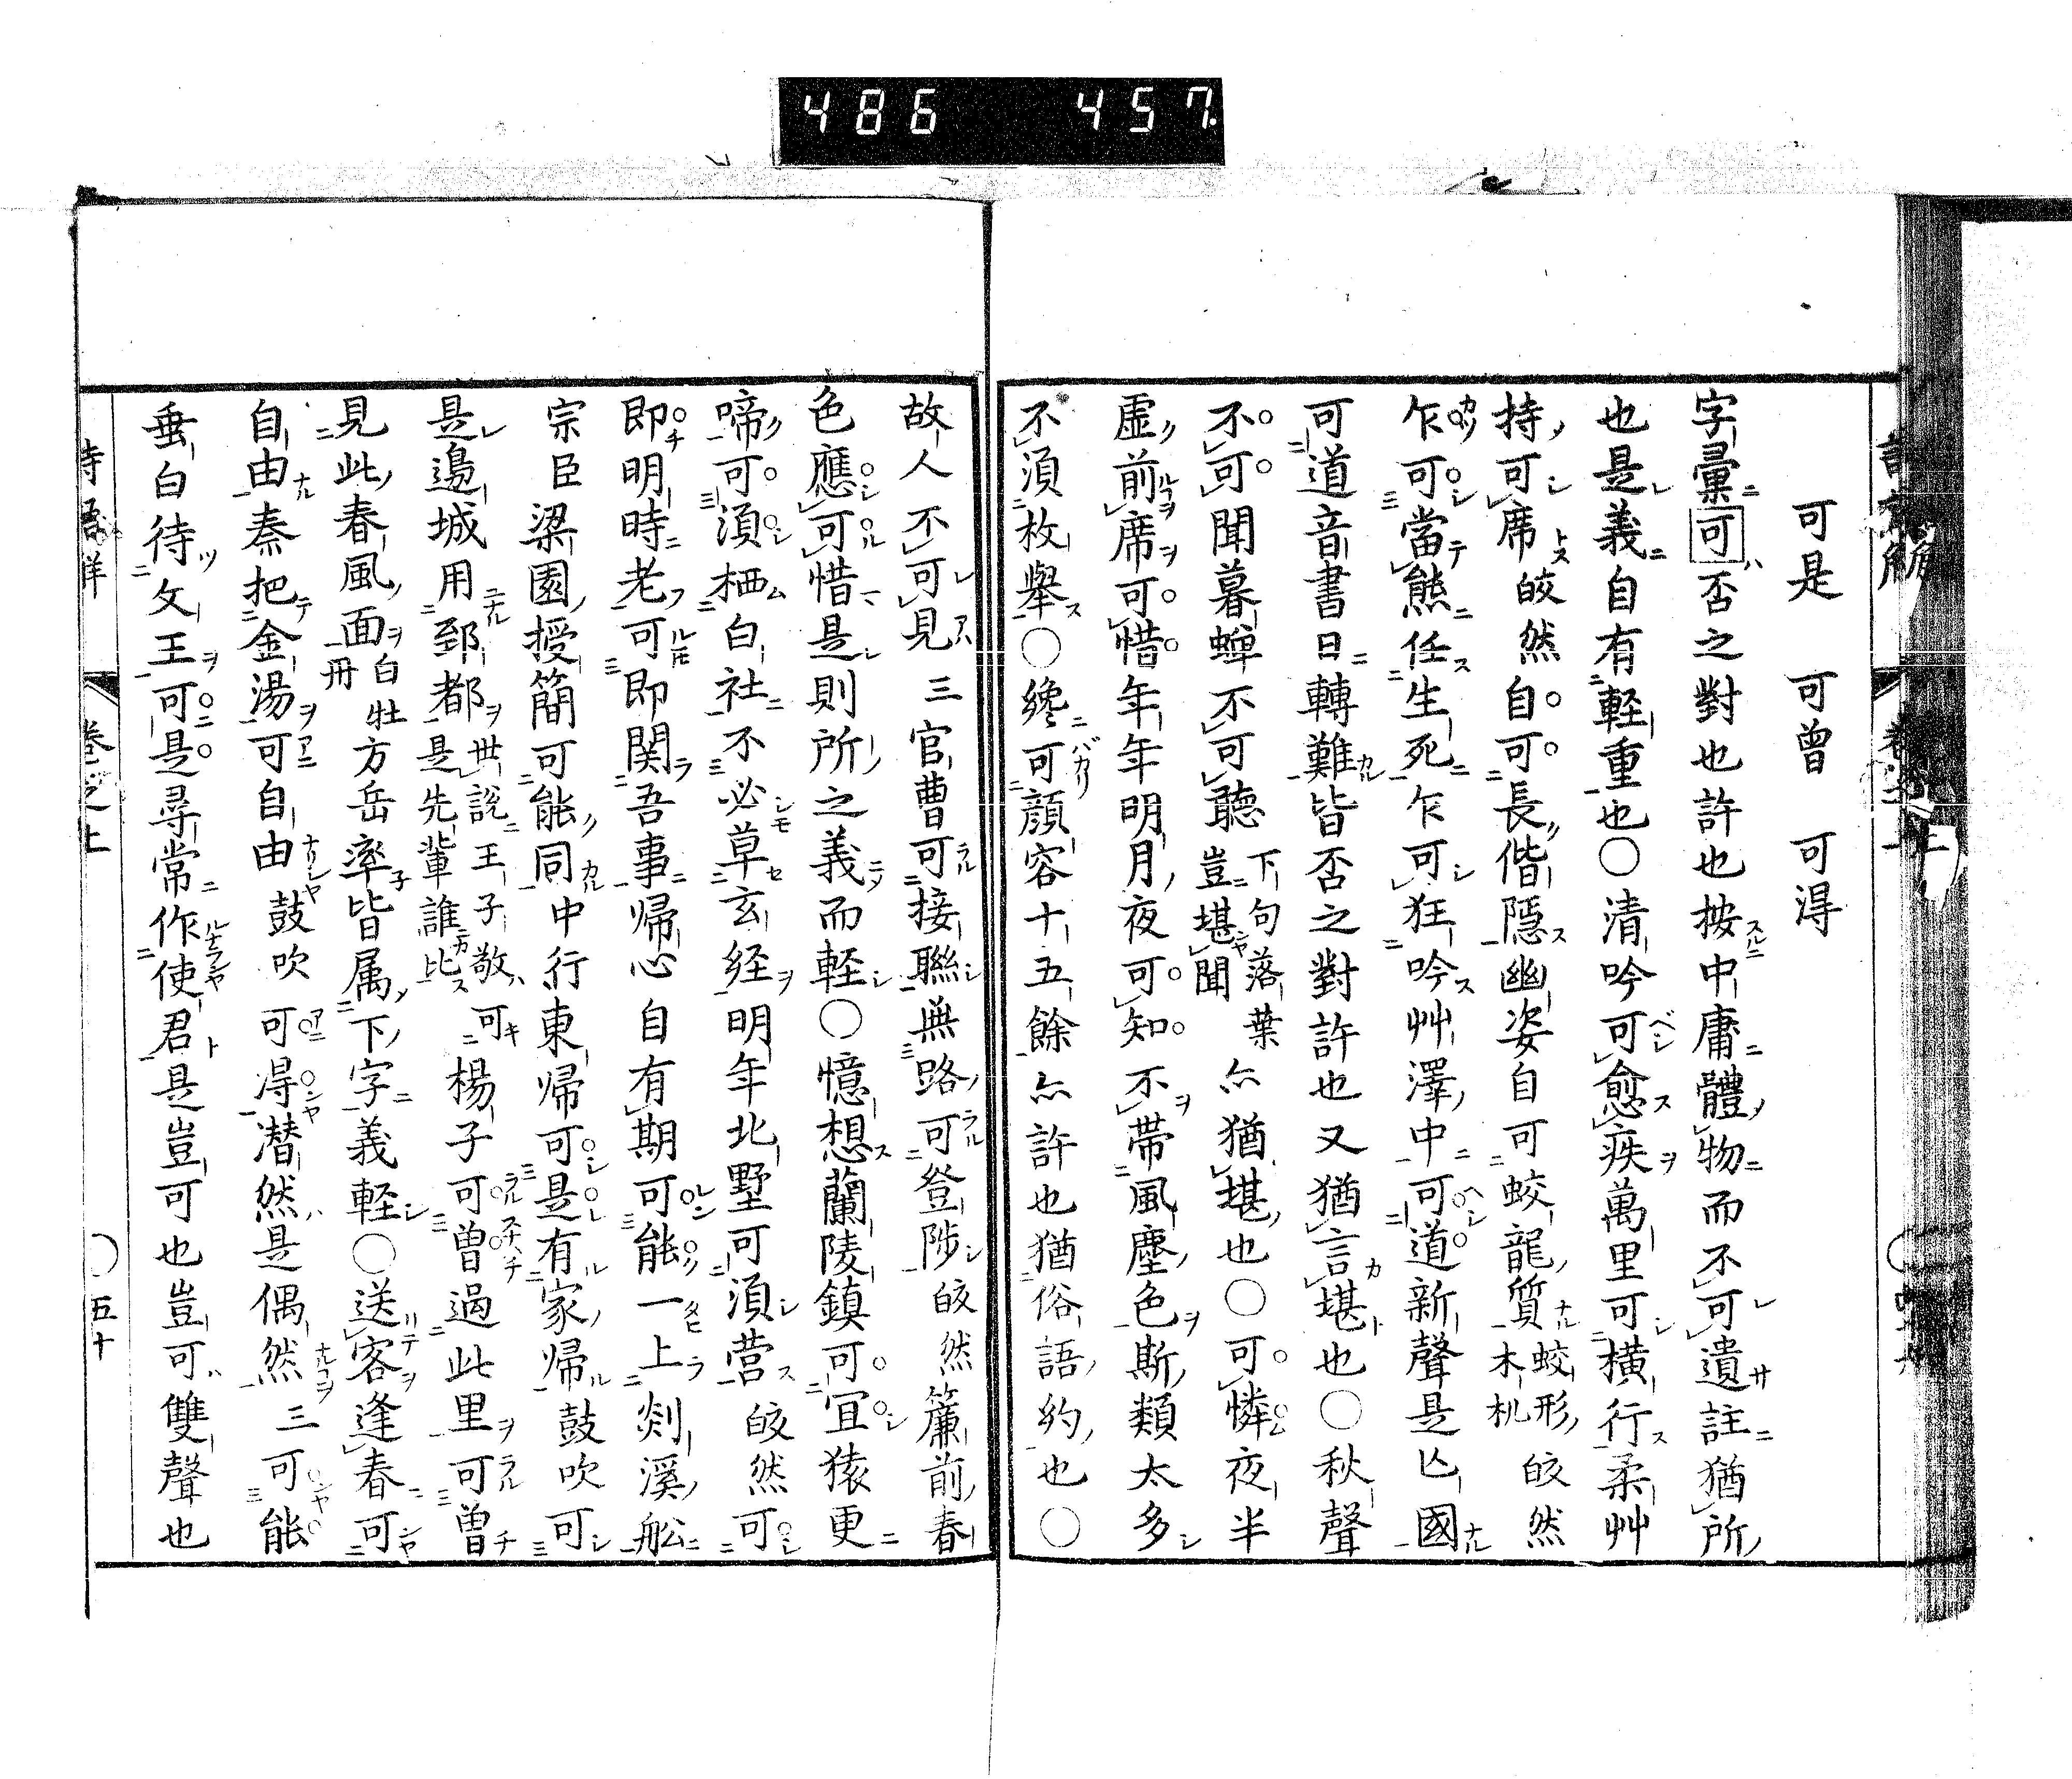 486 457.
可是 可曾 可得
字彙可否之對也許也按中庸體物而不可遺註猶所
也是義自有軽重也〇清吟可愈疾萬里可横行柔艸
持可席皎然自可長偕隱幽姿自可蛟龍質蛟形木机皎然
乍可當熊任生死乍可狂吟艸澤中可道新聲是亾國
可道音書日轉難皆否之對許也又猶言堪也〇秋聲
不可聞暮蟬不可聽下句落葉豈堪聞亦猶堪也〇可憐夜半
虚前席可惜年年明月夜可知不帯風塵色斯類太多
不須枚舉〇纔可顔容十五餘亦許也猶俗語約也〇
故人不可見三官曹可接聯無路可登陟皎然簾前春
色應可惜是則所之義而軽〇憶想蘭陵鎮可宜猿更
啼可須栖白社不必草玄経明年北墅可須営皎然可
即明時老可即関吾事帰心自有期可能一上剡溪舩
宗臣梁園授簡可能同中行東帰可是有家帰鼓吹可
是邉城用郅都世説王子敬是先輩誰比可楊子可曾過此里可曾
見此春風面白牡冊方岳率皆属下字義軽〇送客逢春可
自由秦把金湯可自由鼓吹可得潜然是偶然三可能
垂白待文王可是尋常作使君是豈可也豈可雙聲也
巻之上
五十